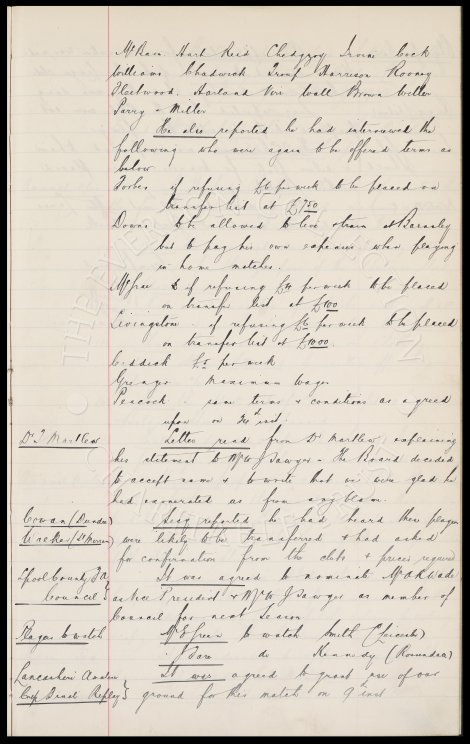 McBain Hart Reid Chedgzoy Irvine Cock
Williams Chadwick Troup Harrison Rooney
Fleetwood. Harland Virr Wall Brown Weller
Parry & Miller
He also reported he had interviewed the
following who were again to be offered terms as
below
Forbes if refusing £6 per week to be placed on
transfer list at £750
Downs to be allowed to live & train at Barnsley
but to pay his own expenses when playing
in home matches.
if refusing per week to be placed
on transfer list at £100
Livingstone if refusing £6 per week to be placed
on transfer list at £1000.
£5 per week
Grenyer Maximum wages
Peacock same terms & conditions as agreed
upon on inst.
Dr J Martlew
Letter read from Dr Martlew, explaining
his statement to Mr W J Sawyer. The Board decided
to accept same & to write that we were glad he
had exonerated us from any blame.
Cowan (Dundee)
(St Mirren)
Secy reported he had heard these players
were likely to be transferred & had asked
for confirmation from the clubs & prices required
L'pool County F.A.
Council
It was agreed to nominate Mr A R Wade
as Vice President & Mr W J Sawyer as member of
Council for next Season
Players to watch
Mr E Green to watch Smith (Leicester)
" J Bare do Kennedy (Rossendale)
Lancashire Amateur
Cup Final Replay
It was agreed to grant use of our
ground for this match on 9th inst
THE EVERTON COLLECTION